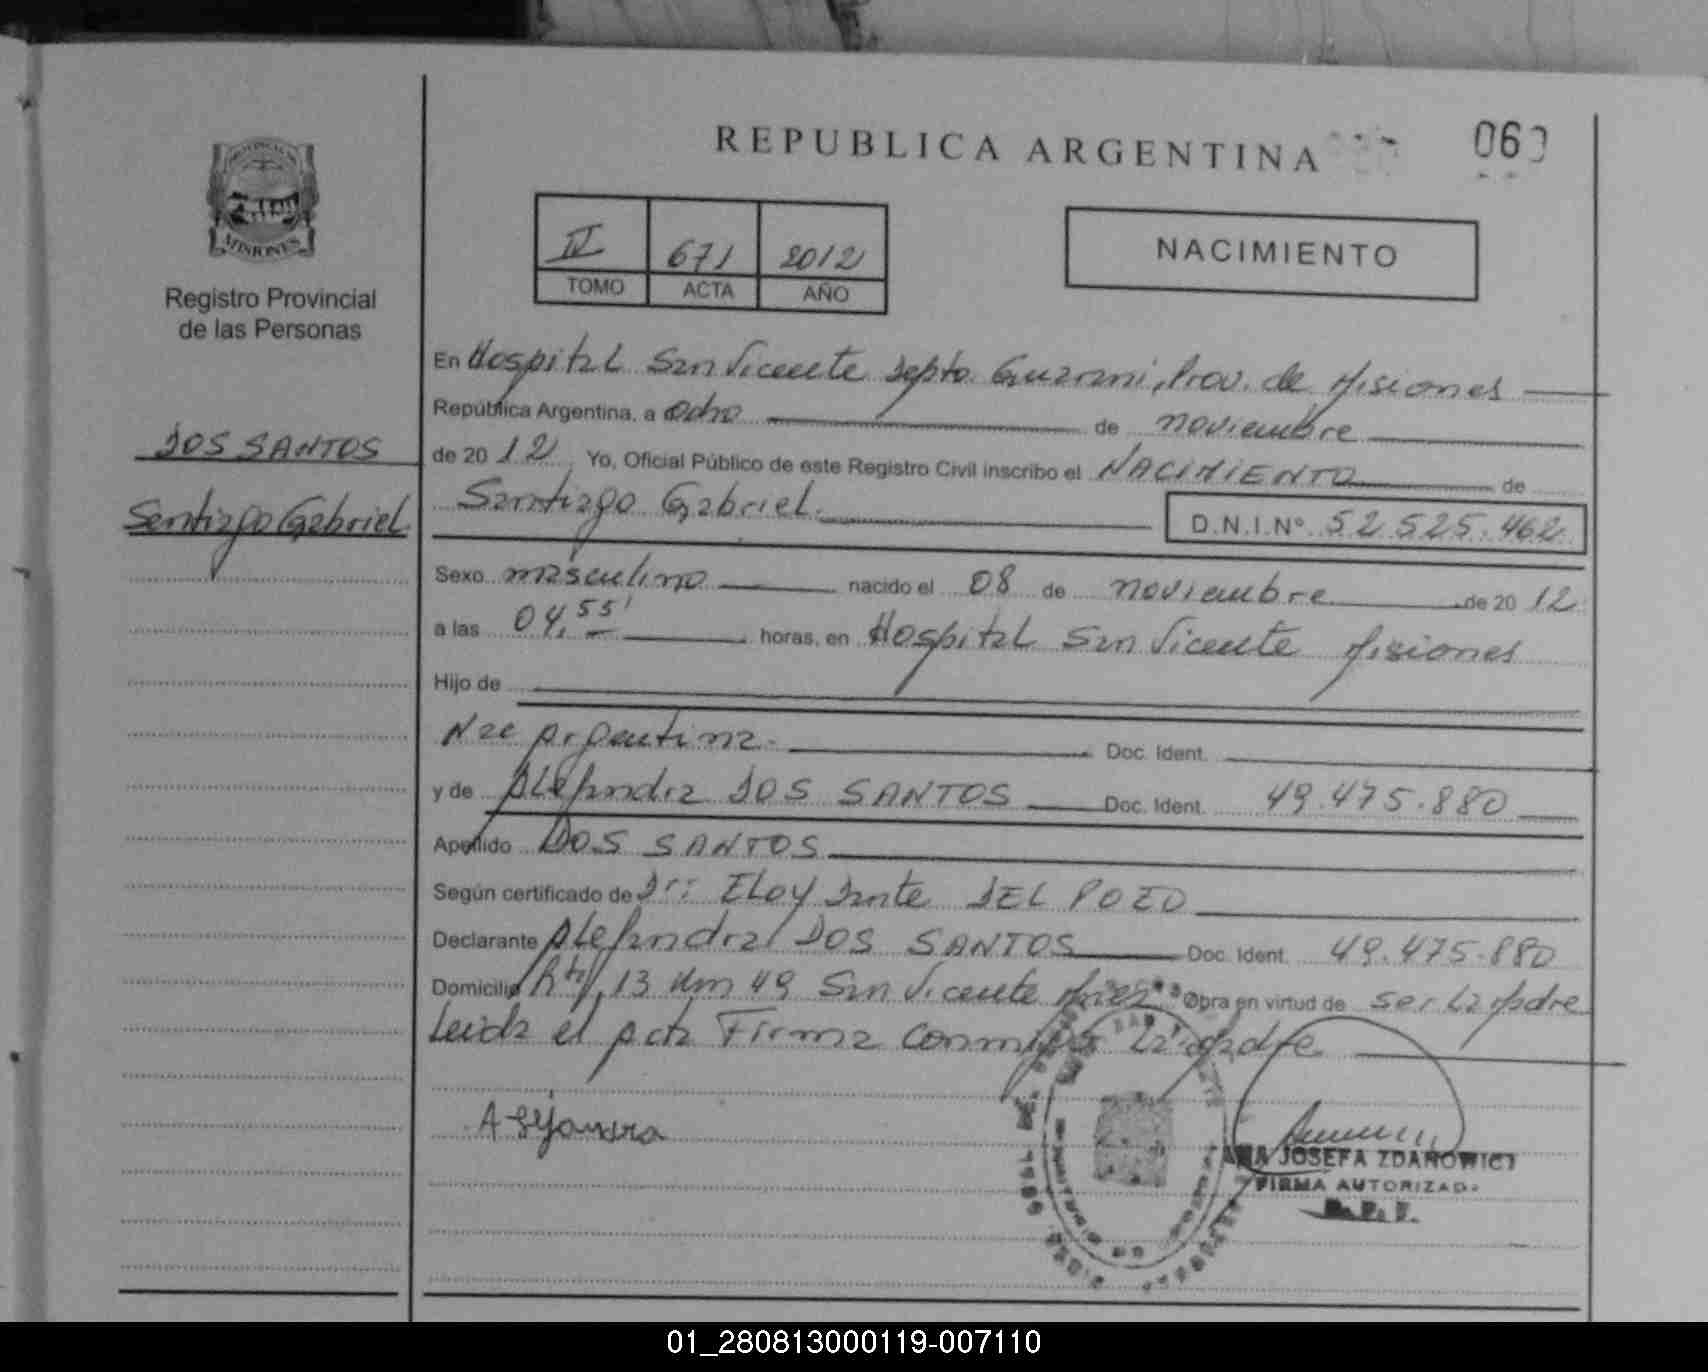 REPUBLICA ARGENTINA
060
PROVINCIA DE
MISIONES
Registro Provincial
de las Personas
IV 671 2012
TOMO ACTA AÑO
NACIMIENTO
DOS SANTOS
Santiago Gabriel
En Hospital San Vicente Depto. Guarani, Prov. de Misiones
República Argentina, a ocho de noviembre
de 2012 Yo, Oficial Público de este Registro Civil inscribo el NACIMIENTO de
Santiago Gabriel. D.N.I.Nº 52.525.462
Sexo masculino nacido el 08 de noviembre de 2012
a las 04,55' horas, en Hospital San Vicente Misiones
Hijo de
Nac Argentina. Doc. Ident.
y de Alejandra DOS SANTOS Doc. Ident. 49.475.880
Apellido DOS SANTOS
Según certificado de Dr: ELOY Dante DEL POZO
Declarante Alejandra DOS SANTOS Doc. Ident. 49.475.880
Domicilio 13 Km 49 San Vicente Mnes Obra en virtud de ser La Madre
Leida el Acta Firma conmigo La Madre
JOSEFA
FIRMA AUTORIZADA
01_280813000119-007110